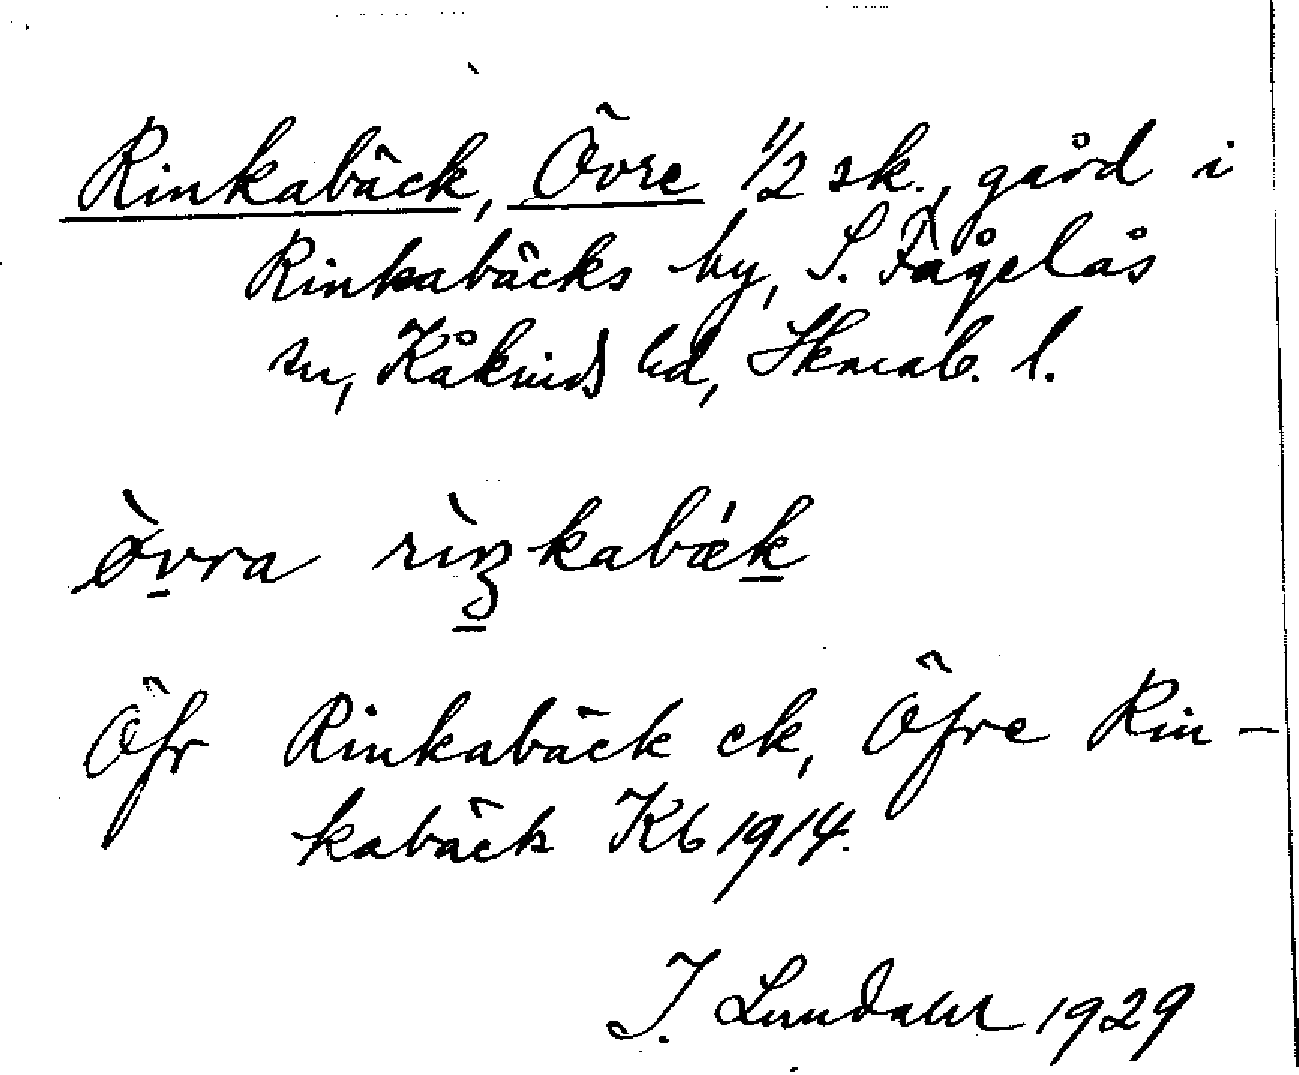 Rinkabäck, Övre 1/2 sk., gård i
Rinkabäcks by, S. Fågelås
sn, Kåkinds hd, Skarab. l.
ö̀vra rìŋkabǽk
Öfr Rinkabäck ek, Öfre Rin-
kabäck Kb 1914.
I. Lundahl 1929